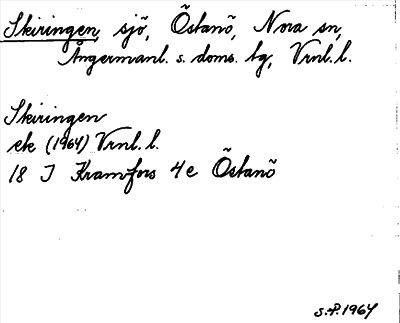 Skiringen, sjö, Östanö, Nora sn,
Ångermanl. s. doms. tg, Vrnl. l.
Skiringen
ek (1964) Vrnl. l.
18 I Kramfors 4e Östanö
S.P. 1964